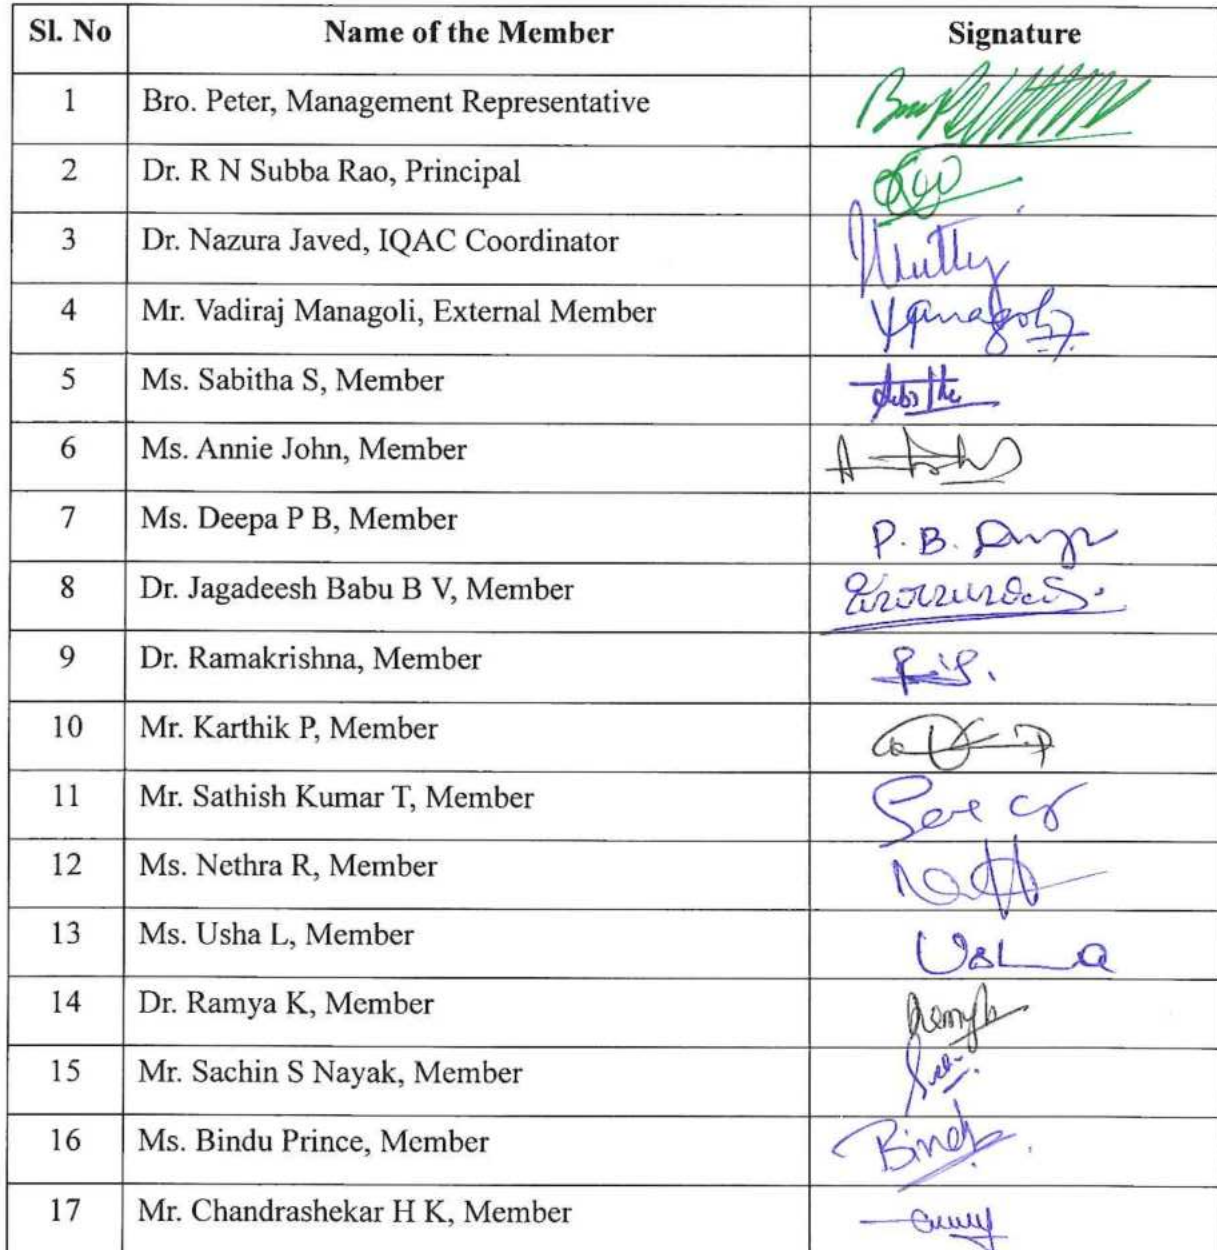 Sl. No Name of the Member Signature
1 Bro. Peter, Management Representative
2 Dr. R N Subba Rao, Principal
3 Dr. Nazura Javed, IQAC Coordinator
4 Mr. Vadiraj Managoli, External Member
5 Ms. Sabitha S, Member
6 Ms. Annie John, Member
7 Ms. Deepa P B, Member P. B.
8 Dr. Jagadeesh Babu B V, Member
9 Dr. Ramakrishna, Member
10 Mr. Karthik P, Member
11 Mr. Sathish Kumar T, Member
12 Ms. Nethra R, Member
13 Ms. Usha L, Member
14 Dr. Ramya K, Member
15 Mr. Sachin S Nayak, Member
16 Ms. Bindu Prince, Member
17 Mr. Chandrashekar H K, Member